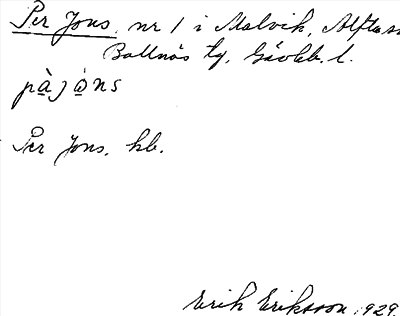 Per Jons, nr 1 i Malvik, Alfta sn
Bollnäs tg, Gävleb. l.
pàjó̱ns
Per Jons, kb.
Erik Eriksson 1929.